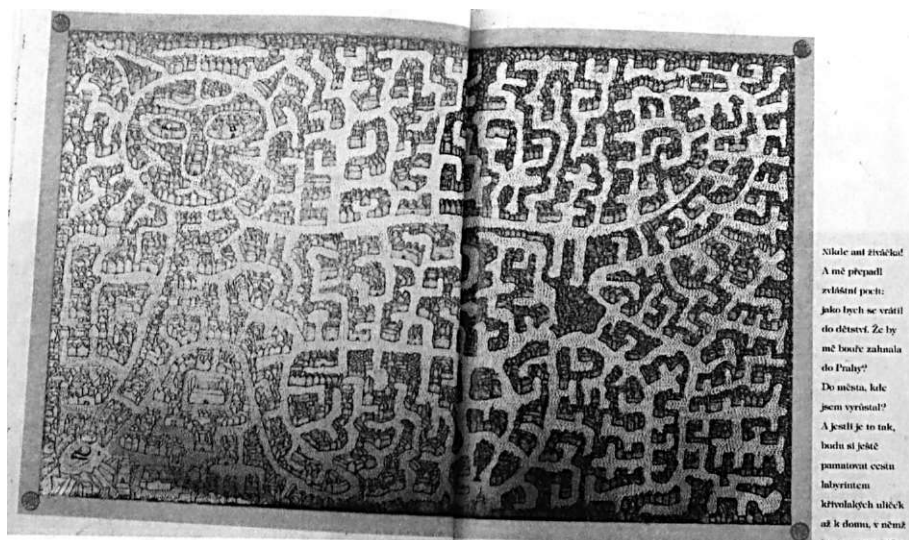 Nikde ani živáčka!
A mě přepadl
zvláštní pocit:
jako bych se vrátil
do dětství. Že by
mě bouře zahnala
do Prahy?
Do města, kde
jsem vyrůstal?
A jestli je to tak,
budu si ještě
pamatovat cestu
labyrintem
křivolakých uliček
až k domu, v němž